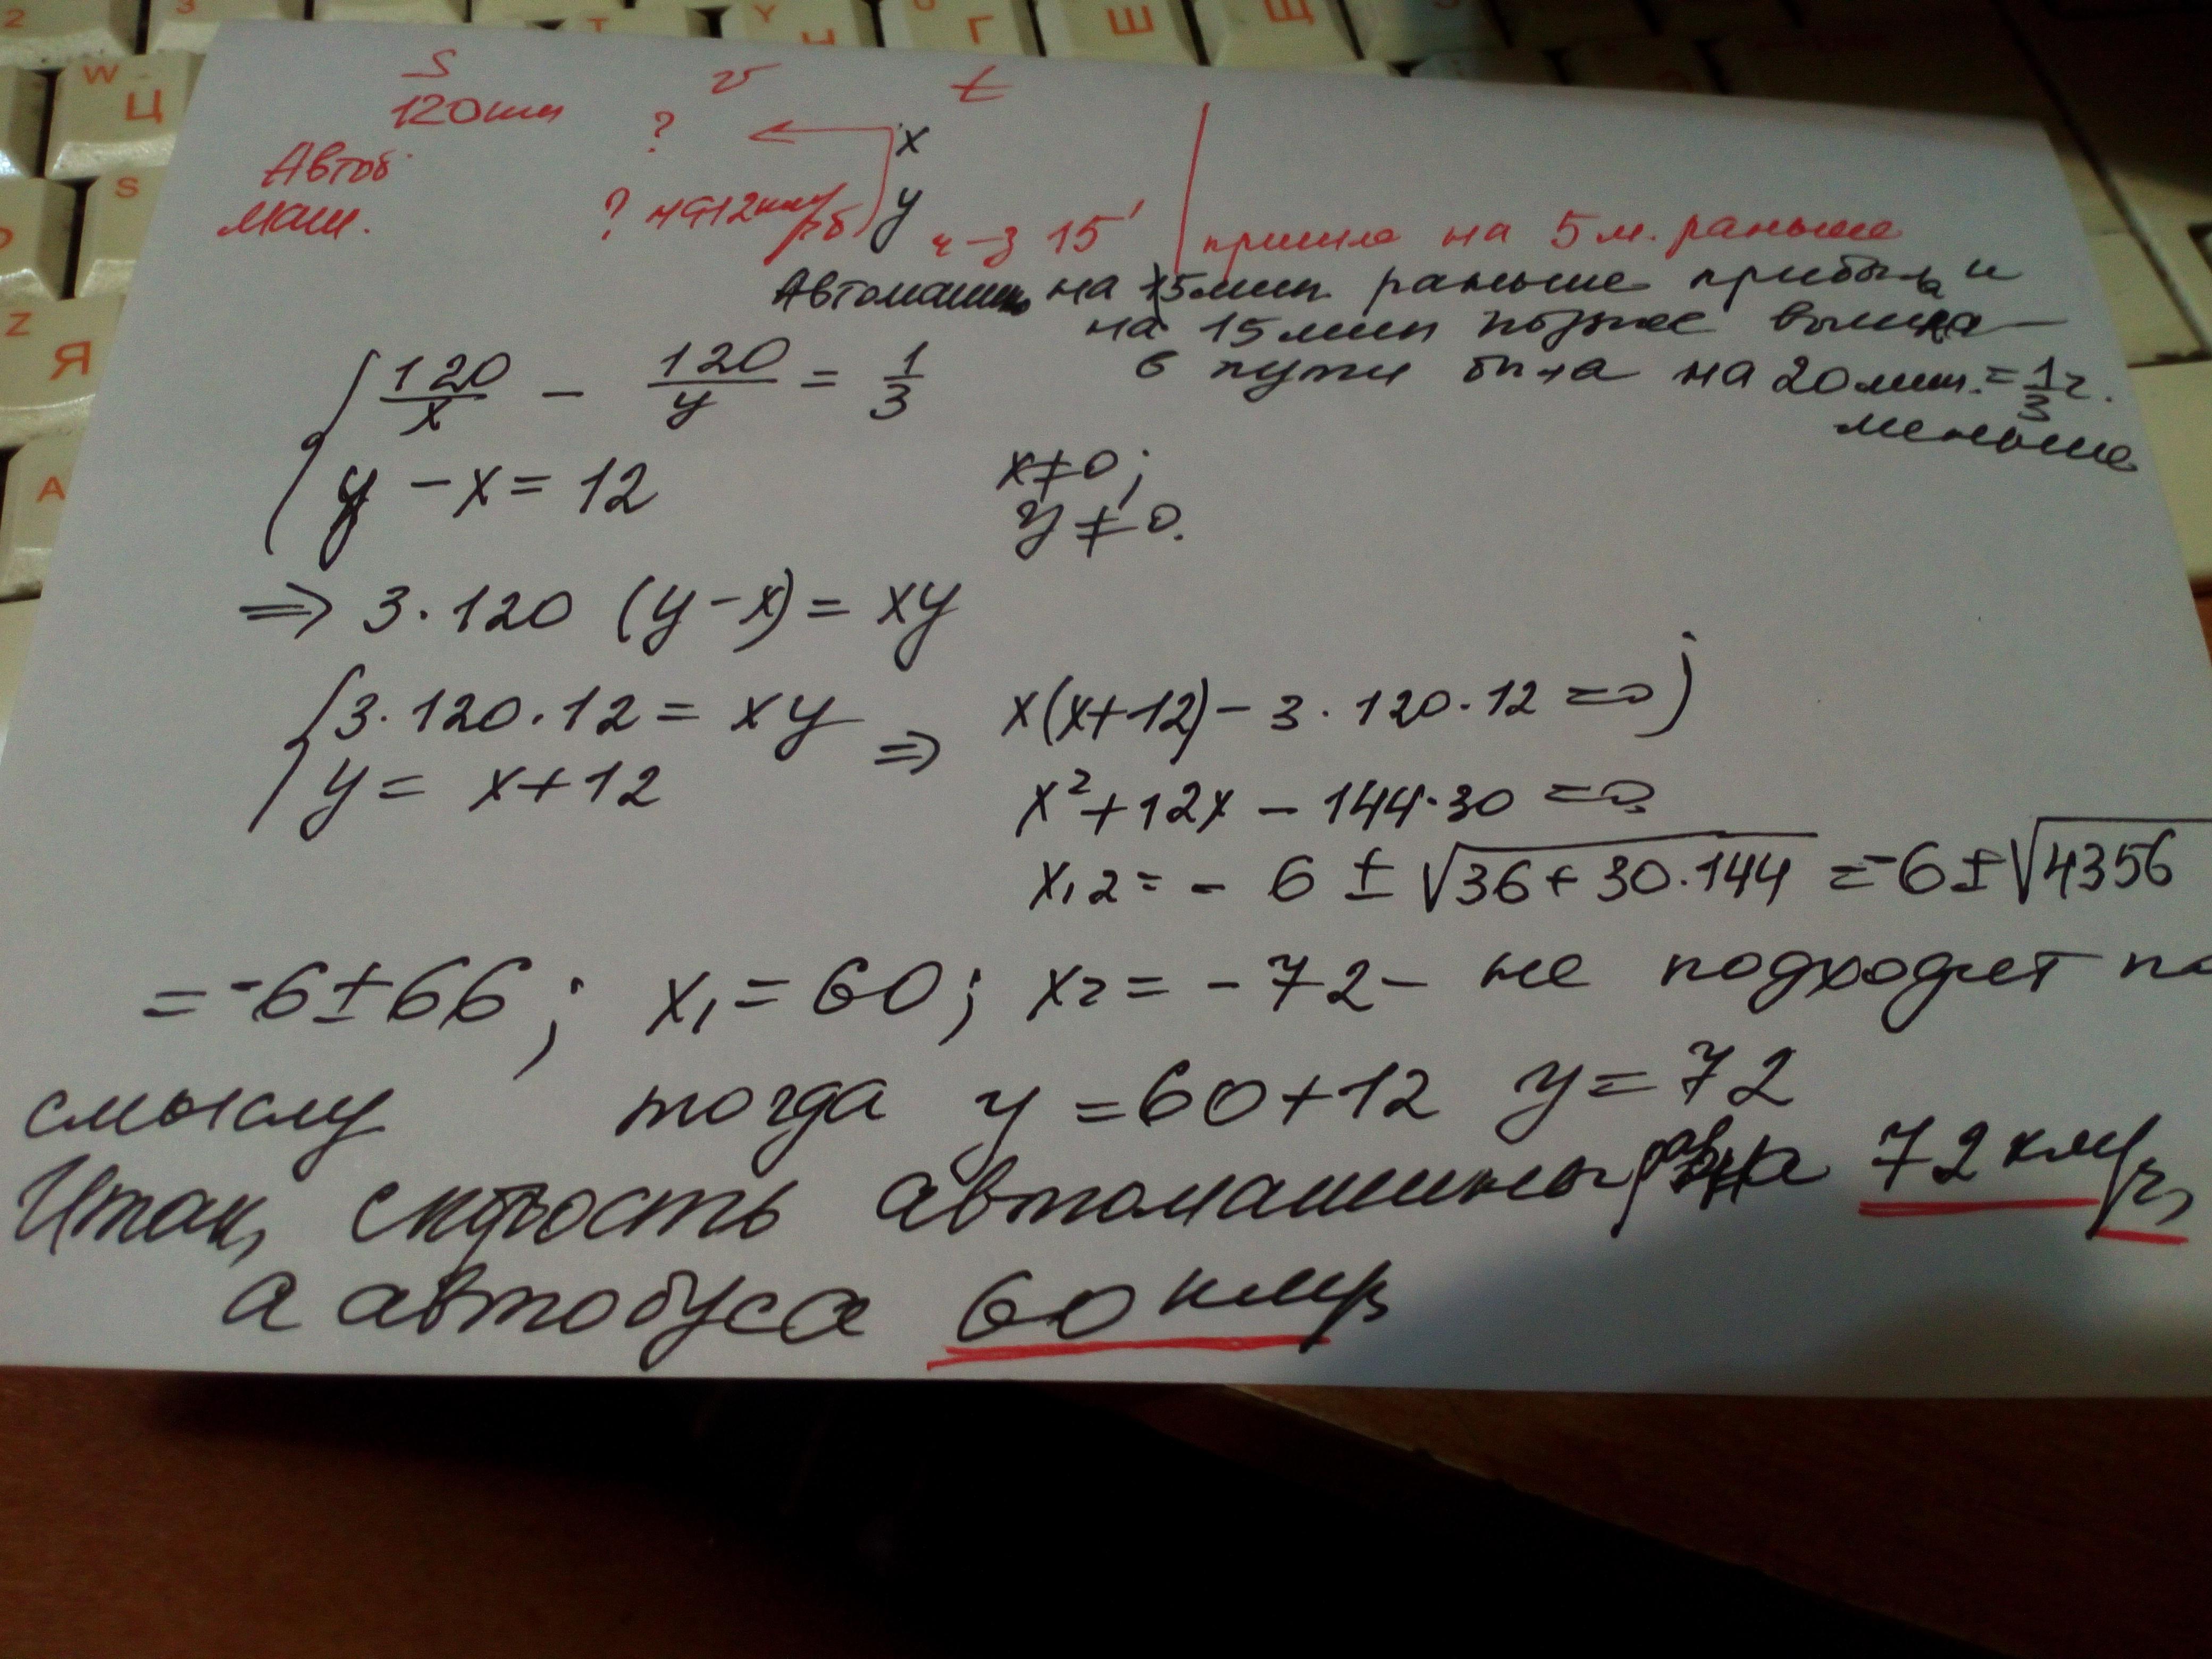 2 3 Y Г Ш Щ
W Ц
S
Z Я
A
S v t
120км
? x
Автоб.
маш. ? на 12км/ч б y ч-з 15' пришла на 5 м. раньше
Автомашина на 5мин. раньше прибыла и
на 15 мин позже вышла —
в пути была на 20 мин. = 1/3 ч.
меньше
120/x − 120/y = 1/3
y − x = 12
x≠0;
y≠0.
⇒ 3·120 (y−x) = xy
3·120·12 = xy ⇒ x(x+12) − 3·120·12 = 0;
y = x+12
x²+12x − 144·30 = 0
x₁₂ = − 6 ± √36+30·144 = −6 ± √4356
= −6 ± 66; x₁ = 60; x₂ = −72 − не подходит по
смыслу тогда y = 60+12 y = 72
Итак, скорость автомашины равна 72 км/ч,
а автобуса 60 км/ч